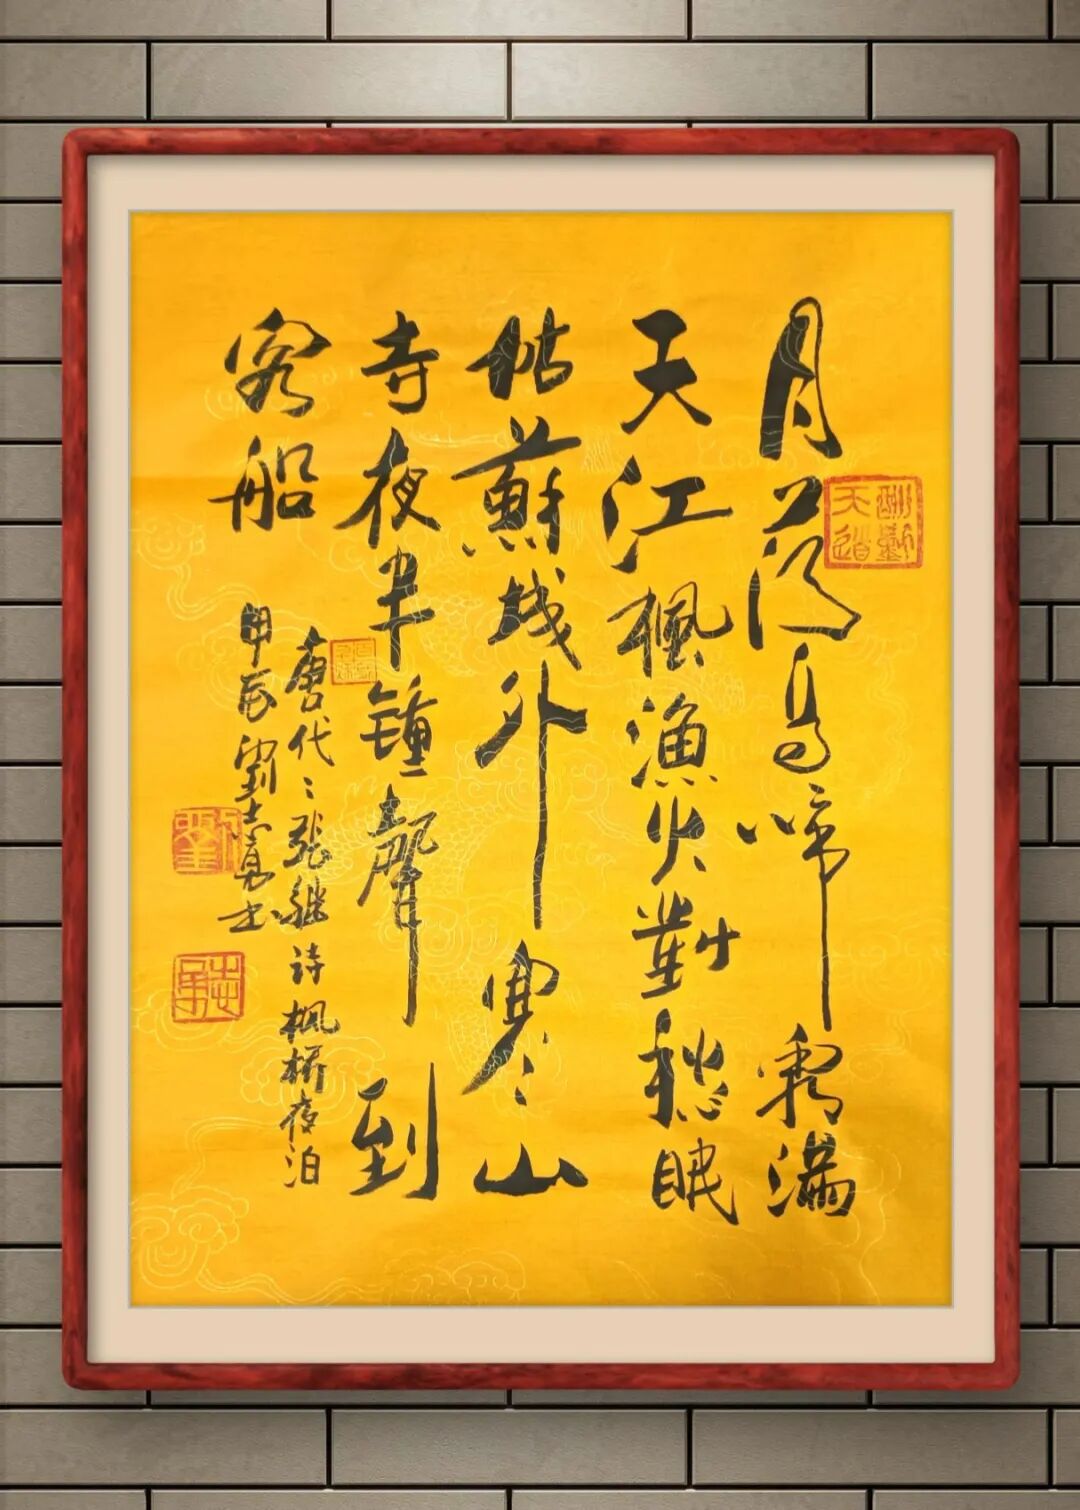 月落烏啼霜滿
天江楓漁火對愁眠
姑蘇城外寒山
寺夜半鐘聲到
客船
唐代:張継诗楓橋夜泊
甲辰劉志勇书
天道酬勤
劉
志勇